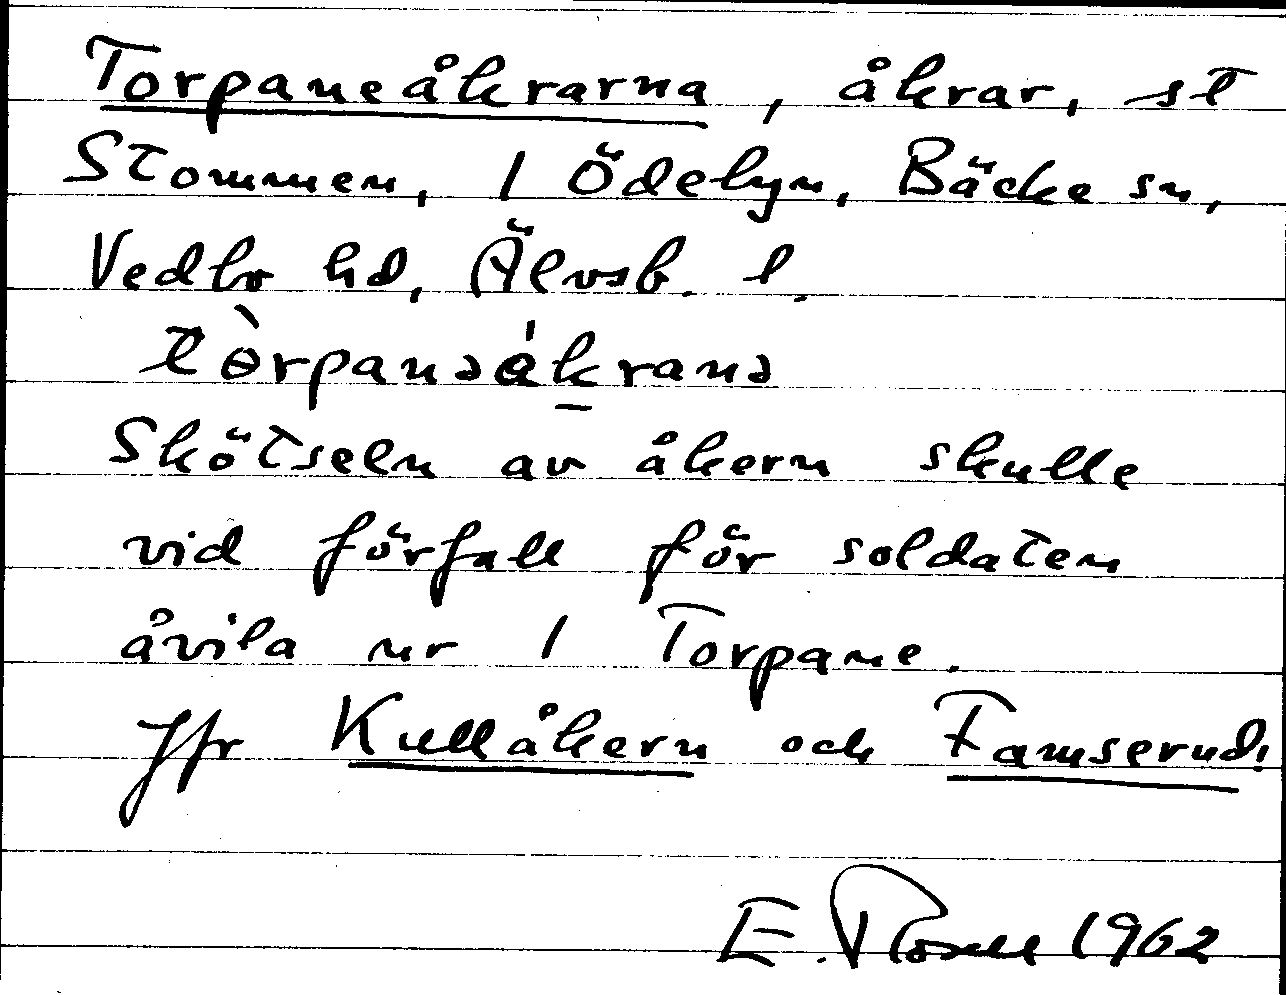 Torpaneåkrarna, åkrar, st
Stommen, 1 Ödebyn, Bäcke sn,
Vedbo hd, Älvsb. l.
tòrpanəåkranə
Skötseln av åkern skulle
vid förfall för soldaten
åvila nr 1 Torpane.
Jfr Kullåkern och Famserud!
E. Rosell 1962